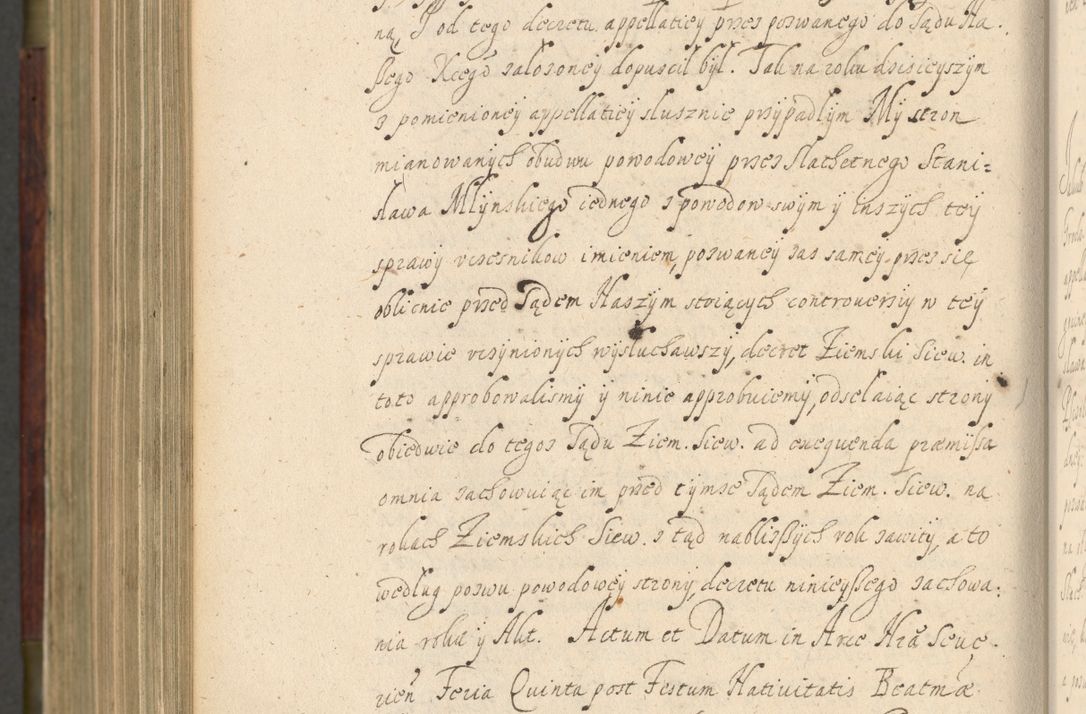 ną, J od tego decretu appellatiey przez pozwanego do Sądu Na
szego Xcego założoney dopuscił był. Tak na roku dzisieyszym
z pomienioney appellatiey słusznie przypadłym My stron
mianowanych obudwu powodowey przez Slachetnego Stani=
sława Młynskiego iednego z powodow swym y inszych tey
sprawy uczesnikow imieniem, pozwaney zas samey przez się
oblicnie przed Sądem Naszym stoiących controuersiy w tey
sprawie uczynionych wysłuchawszy, decret Ziemski Siew. in
toto approbowalismy y ninie approbuiemy, odsełaiąc strony
obiedwie do tegoz Sądu Ziem. Siew. ad exequenda præmissa
omnia zachowuiąc im przed tymze Sądem Ziem. Siew. na
rokach Ziemskich Siew. z tąd nablizszych rok zawity, a to
według pozwu powodowey strony, decretu ninieyszego zachowa:
nia roku y Akt. Actum et Datum in Arce Nra Seue
rien Feria Quinta post Festum Natiuitatis Beatmæ